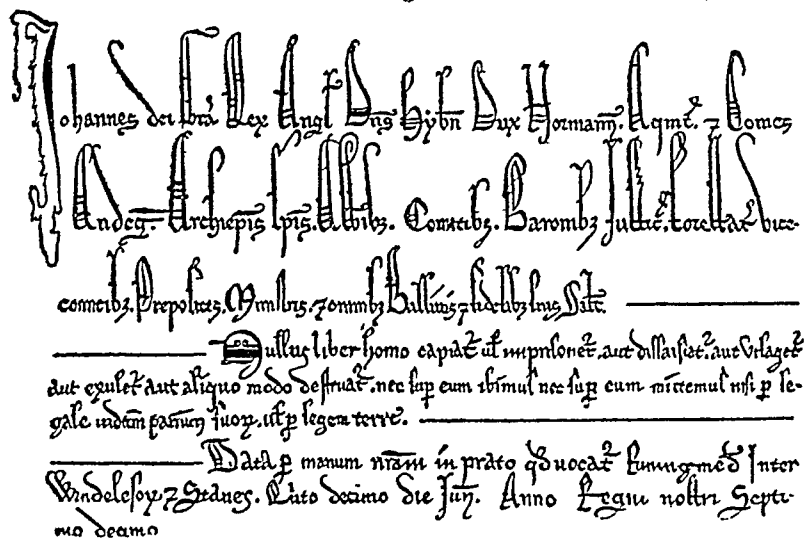 Johannes dei gra Rex Angl Dns Hybn Dux Normann. Aqmt. ⁊ Comes
Andeg. Archiepis Epis. Abbibz. Comitibz. Baronibz Justic. Forestar vice-
comitibz. Prepositis. Ministris. ⁊ omnibz Ballivis ⁊ fidelibz suis Salt.
Nullus liber homo capiat ul imprisonet. aut dissaisiat. aut utlaget
aut exulet aut aliquo modo destruat. nec sup eum ibimus nec sup eum mittemus nisi p le-
gale iudm parium suor. ul p legem terre.
Data p manum nram in prato qd vocat Runingmed Inter
Windelesor ⁊ Stanes. Quto decimo die Jun. Anno Regni nostri Septi-
mo decimo